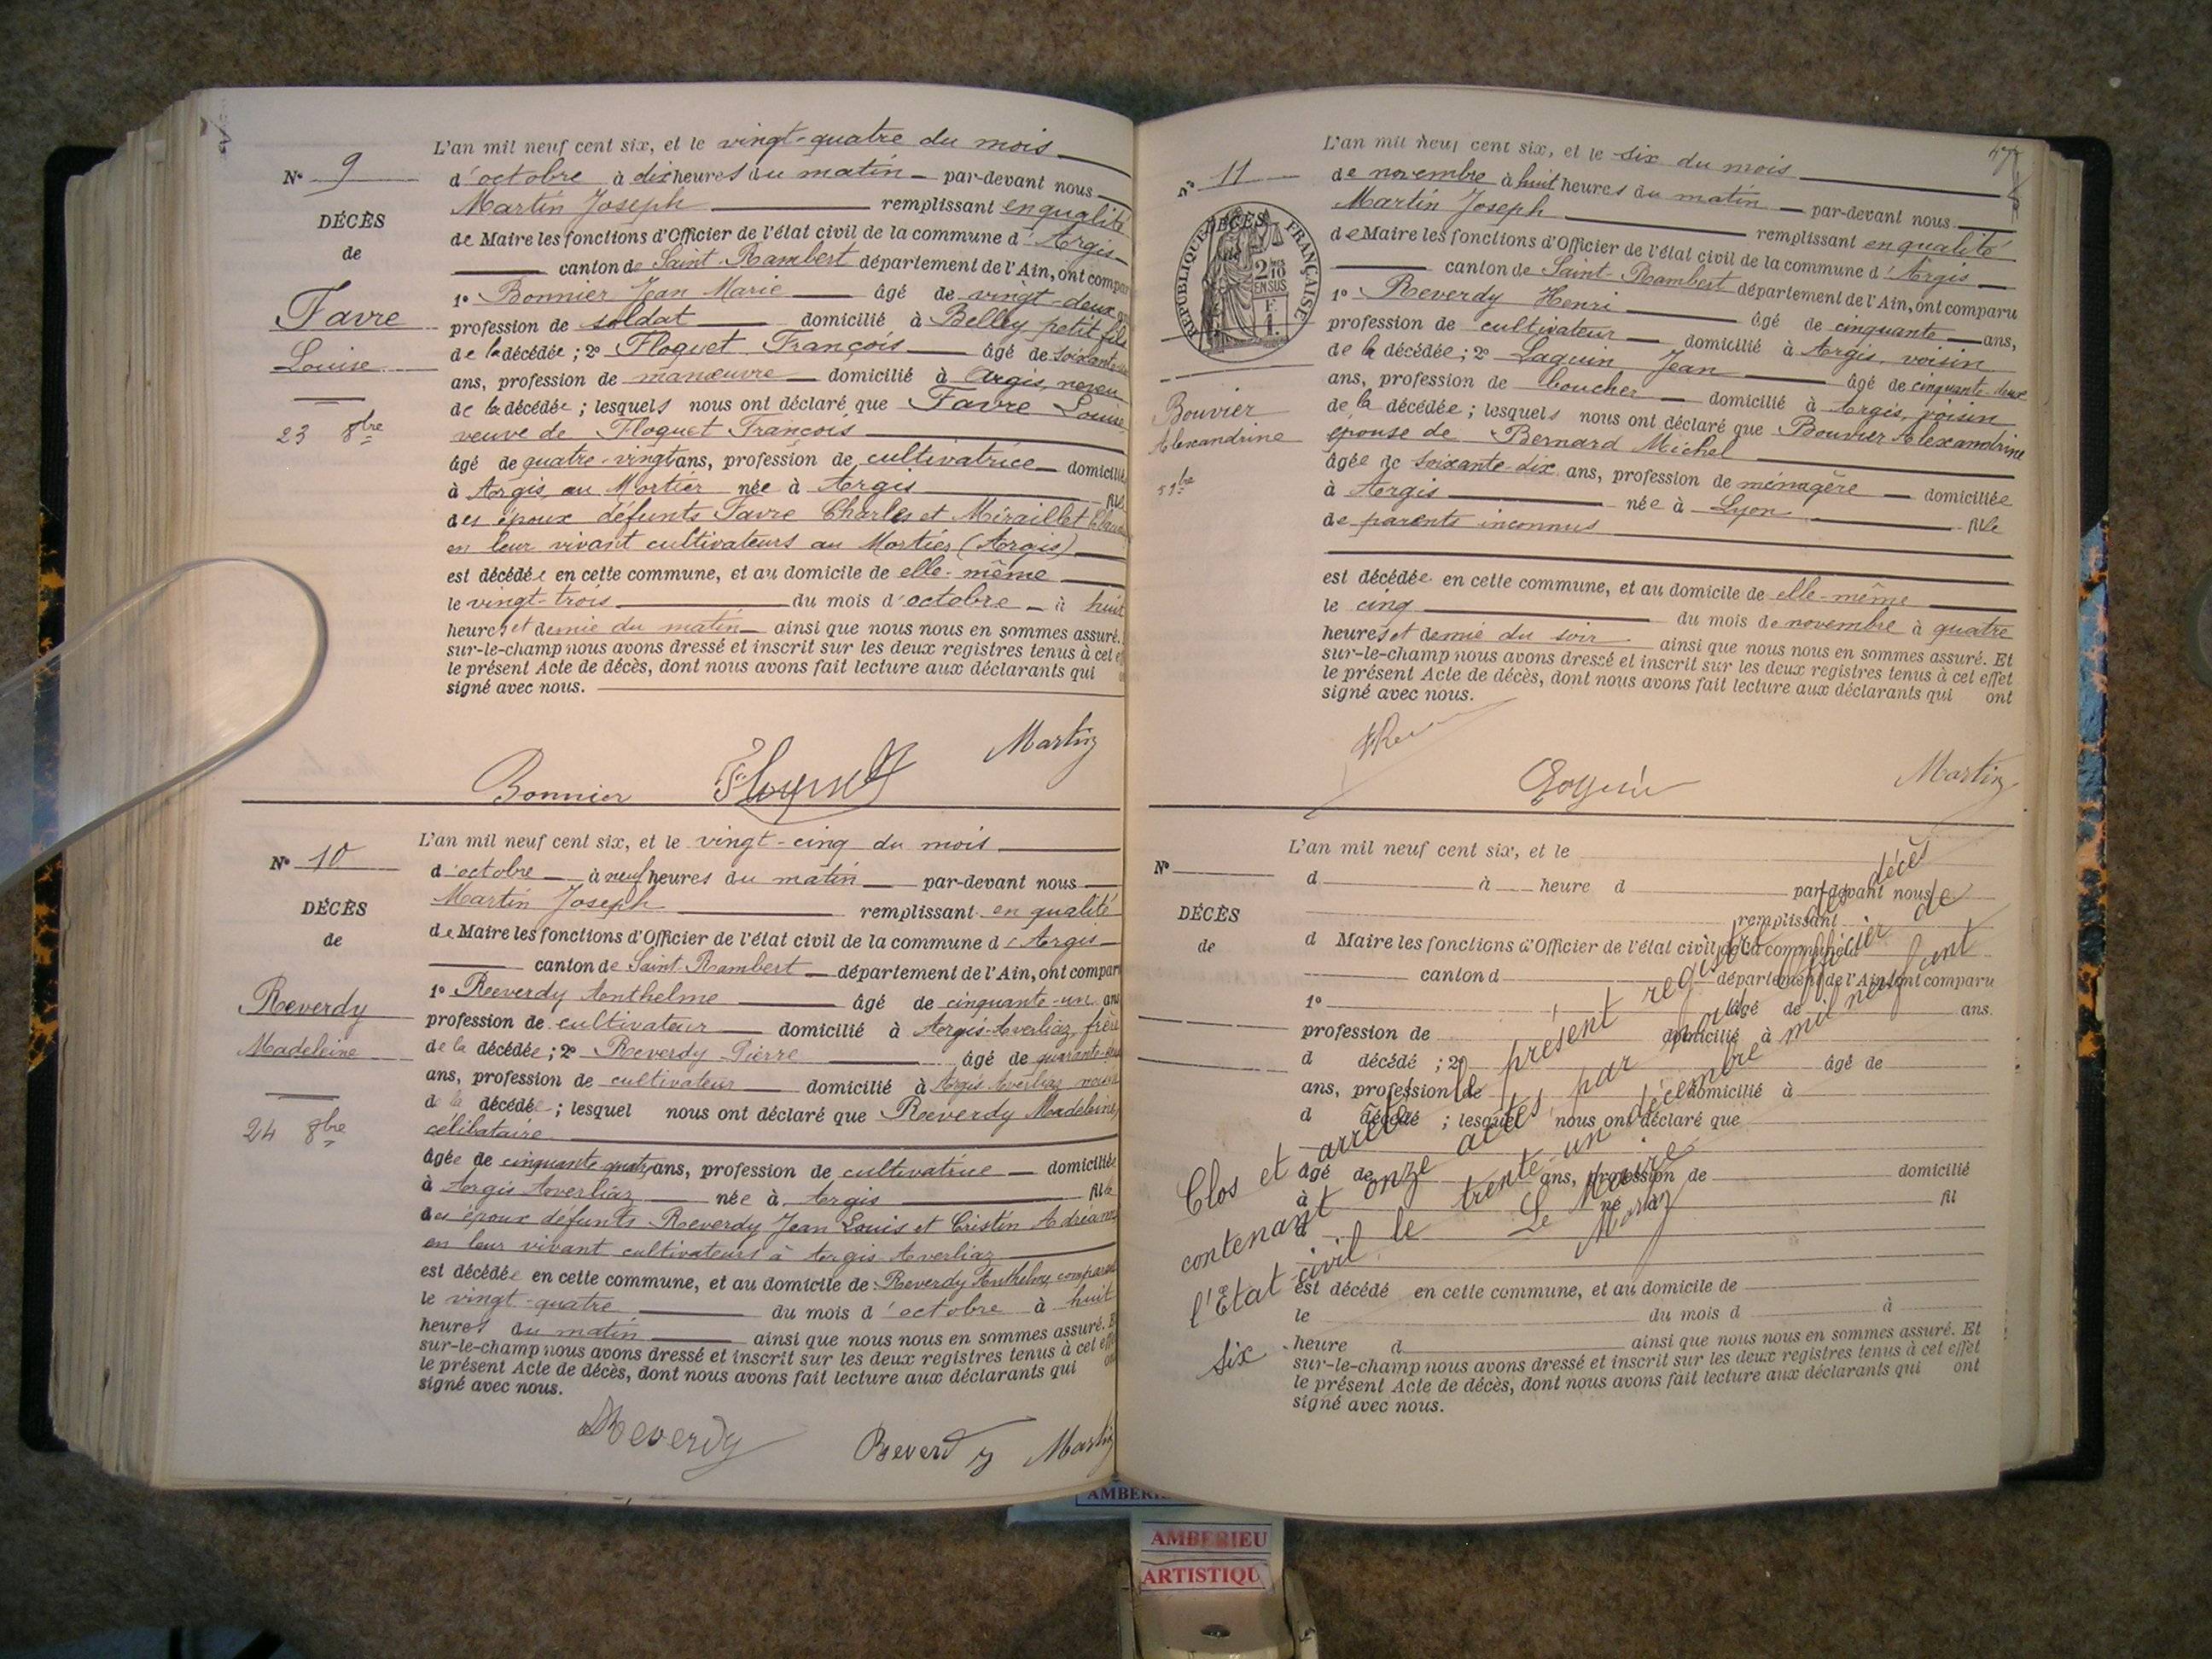 L'an mil neuf cent six, et le vingt-quatre du mois
N° 9
d'octobre à dix heures du matin par-devant nous
Martin Joseph remplissant en qualité
DÉCÈS
de Maire les fonctions d'Officier de l'état civil de la commune d'Argis
de
canton de Saint-Rambert département de l'Ain, ont compa
1° Bonnier Jean Marie âgé de vingt-deux
Favre
profession de soldat domicilié à Belley petit fils
Louise
de la décédée ; 2° Floquet François âgé de soixante
ans, profession de manœuvre domicilié à Argis, neveu
de la décédée ; lesquels nous ont déclaré que Favre Louise
23 8bre
veuve de Floquet François
âgé de quatre-vingt ans, profession de cultivatrice domicilié
à Argis au Mortier née à Argis fille
des époux défunts Favre Charles et Méraillet
en leur vivant cultivateurs au Mortier (Argis)
est décédée en cette commune, et au domicile de elle-même
le vingt-trois du mois d'octobre à huit
heures et demie du matin ainsi que nous nous en sommes assuré.
sur-le-champ nous avons dressé et inscrit sur les deux registres tenus à cet
le présent Acte de décès, dont nous avons fait lecture aux déclarants qui
signé avec nous.
Martin
Bonnier
L'an mil neuf cent six, et le vingt-cinq du mois
N° 10
d'octobre à neuf heures du matin par-devant nous
Martin Joseph remplissant en qualité
DÉCÈS
de Maire les fonctions d'Officier de l'état civil de la commune d'Argis
de
canton de Saint-Rambert département de l'Ain, ont compar
1° Reverdy Anthelme âgé de cinquante-un an
Reverdy
profession de cultivateur domicilié à Argis-Averliaz, frère
Madeleine
de la décédée ; 2° Reverdy Pierre âgé de quarante
ans, profession de cultivateur domicilié à Argis Averliaz voisin
de la décédée ; lesquel nous ont déclaré que Reverdy Madeleine,
24 8bre
célibataire
âgée de cinquante quatre ans, profession de cultivatrice domiciliée
à Argis Averliaz née à Argis fille
des époux défunts Reverdy Jean Louis et Cristin
en leur vivant cultivateurs à Argis Averliaz
est décédée en cette commune, et au domicile de Reverdy Anthelme
le vingt-quatre du mois d'octobre à huit
heures du matin ainsi que nous nous en sommes assuré.
sur-le-champ nous avons dressé et inscrit sur les deux registres tenus à cet
le présent Acte de décès, dont nous avons fait lecture aux déclarants qui
signé avec nous.
Reverdy
Reverdy Martin
L'an mil neuf cent six, et le six du mois
N° 11
de novembre à huit heures du matin par-devant nous
Martin Joseph remplissant en qualité
DÉCÈS
RÉPUBLIQUE FRANÇAISE
de Maire les fonctions d'Officier de l'état civil de la commune d'Argis
canton de Saint-Rambert département de l'Ain, ont comparu
2 10
EN SUS
1° Reverdy Henri âgé de cinquante ans,
profession de cultivateur domicilié à Argis, voisin
de la décédée ; 2° Laguin Jean âgé de cinquante deux
ans, profession de boucher domicilié à Argis, voisin
Bouvier
de la décédée ; lesquels nous ont déclaré que Bouvier Alexandrine
Alexandrine
épouse de Bernard Michel
âgée de soixante-dix ans, profession de ménagère domiciliée
à Argis née à Lyon fille
de parents inconnus
est décédée en cette commune, et au domicile de elle-même
le cinq du mois de novembre à quatre
heures et demie du soir ainsi que nous nous en sommes assuré. Et
sur-le-champ nous avons dressé et inscrit sur les deux registres tenus à cet effet
le présent Acte de décès, dont nous avons fait lecture aux déclarants qui ont
signé avec nous.
Martin
L'an mil neuf cent six, et le
N°
d à heure d par-devant nous
remplissant
DÉCÈS
d Maire les fonctions d'Officier de l'état civil de la commune d
de
canton d département de l'Ain, ont comparu
1° âgé de ans.
profession de domicilié à
d décédé ; 2° âgé de
ans, profession de domicilié à
d décédé ; lesquel nous ont déclaré que
âgé de ans, profession de domicilié
à né à fil
d
est décédé en cette commune, et au domicile de
le du mois d à
heure d ainsi que nous nous en sommes assuré. Et
sur-le-champ nous avons dressé et inscrit sur les deux registres tenus à cet effet
le présent Acte de décès, dont nous avons fait lecture aux déclarants qui ont
signé avec nous.
Clos et arrêté le présent registre des décès
contenant onze actes par nous officier de
l'Etat civil le trente-un décembre mil neuf cent
six
Le Maire
Martin
AMBERIEU
ARTISTIQU